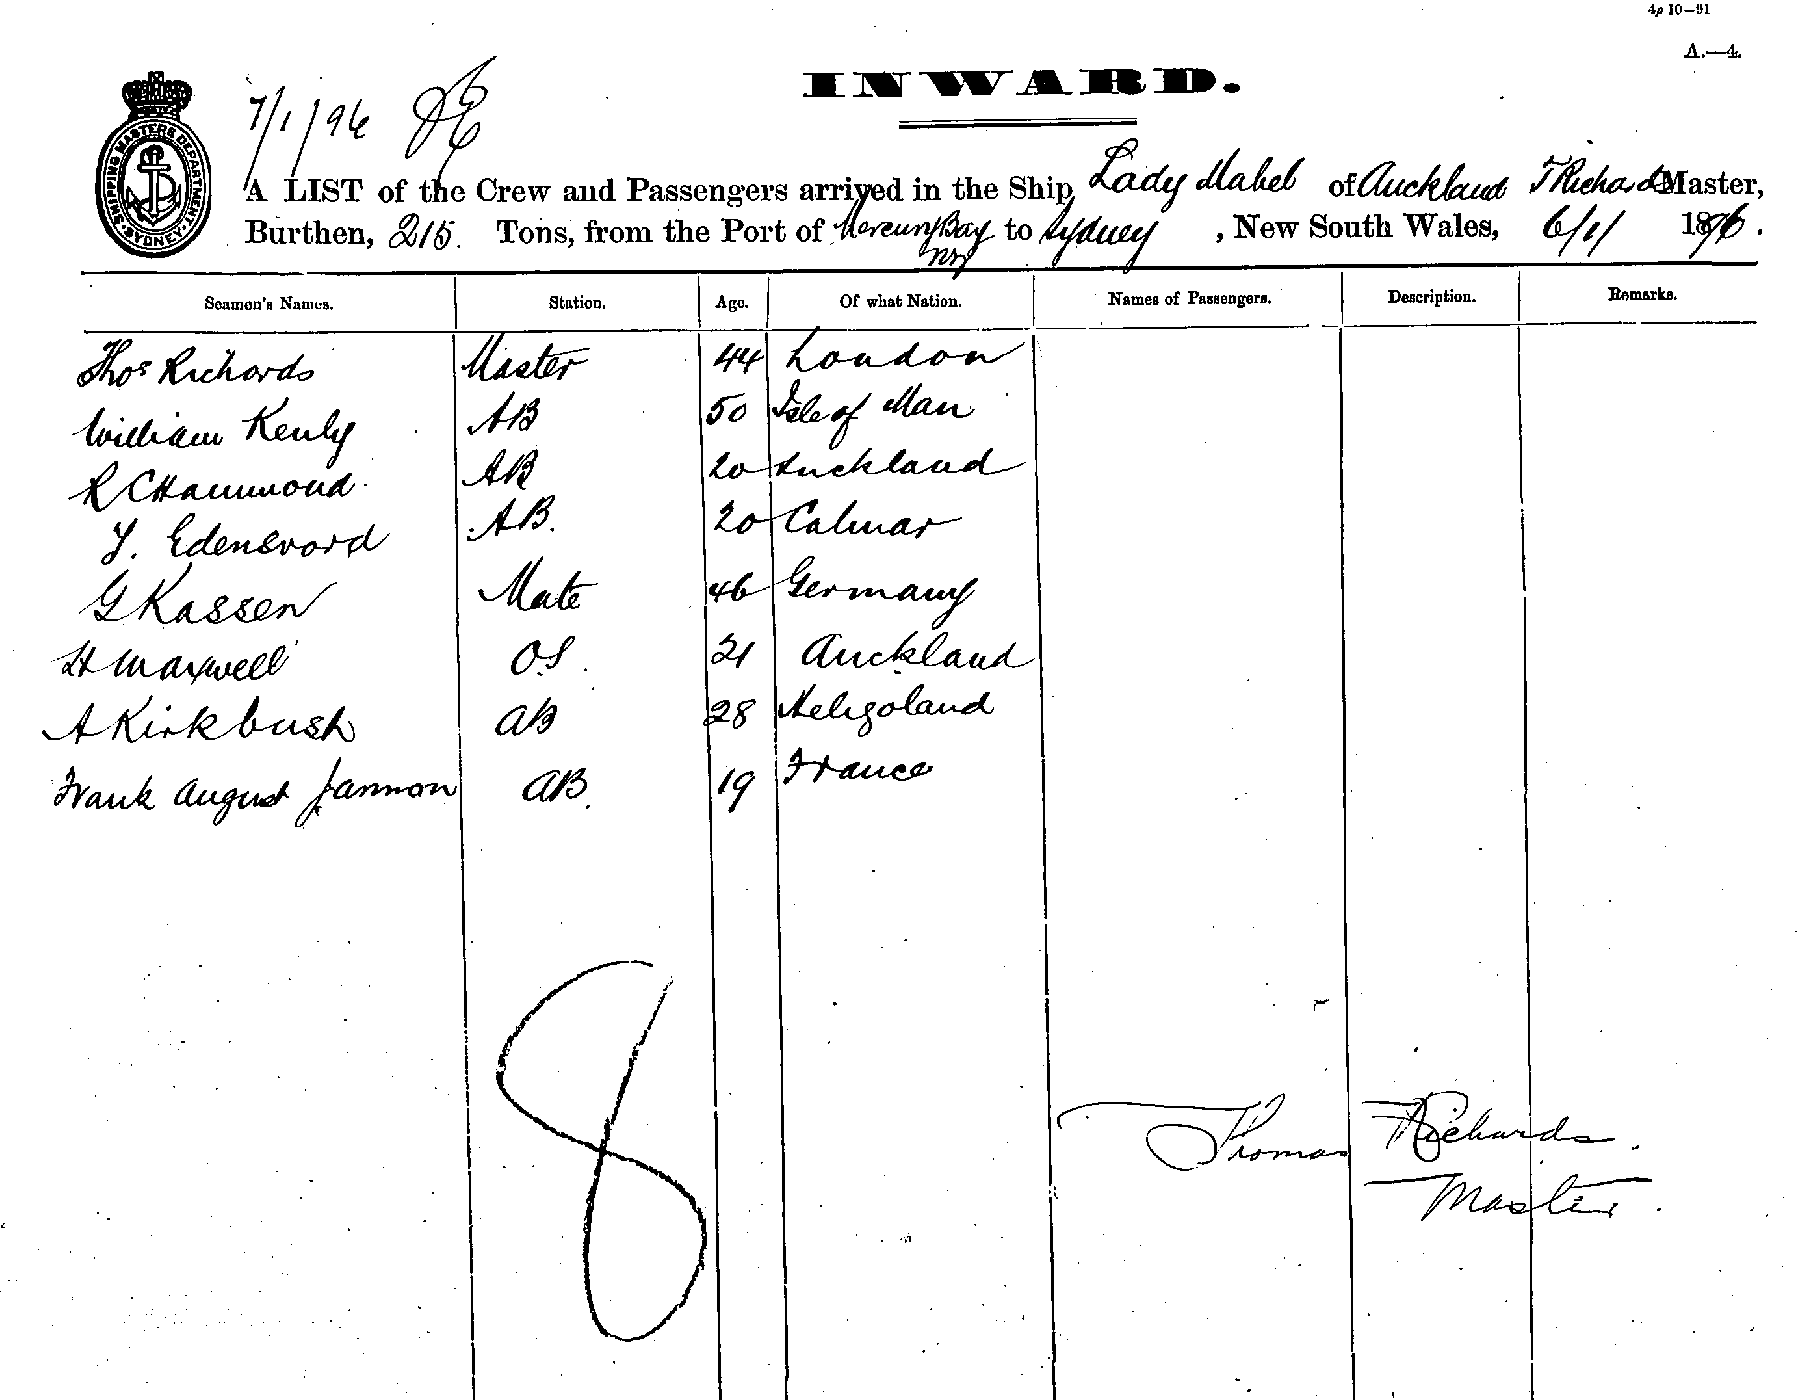 4p 10—91
A.—4.
INWARD.
7/1/96
SHIPPING MASTERS DEPARTMENT. SYDNEY.
A LIST of the Crew and Passengers arrived in the Ship Lady Mabel of Auckland T Richards Master,
Burthen, 215. Tons, from the Port of Mercury Bay NZ to Sydney, New South Wales, 6/1/ 1896.
Seamen's Names. Station. Age. Of what Nation. Names of Passengers. Description. Remarks.
Thos Richards Master 44 London
William Kenly AB 50 Isle of Man
R C Hammond AB 20 Auckland
J. Edensvord AB. 20 Calmar
G Kassen Mate 46 Germany
H Maxwell OS. 21 Auckland
A Kirkbush AB 28 Heligoland
Frank August Jannon AB. 19 France
8
Thomas Richards.
Master.